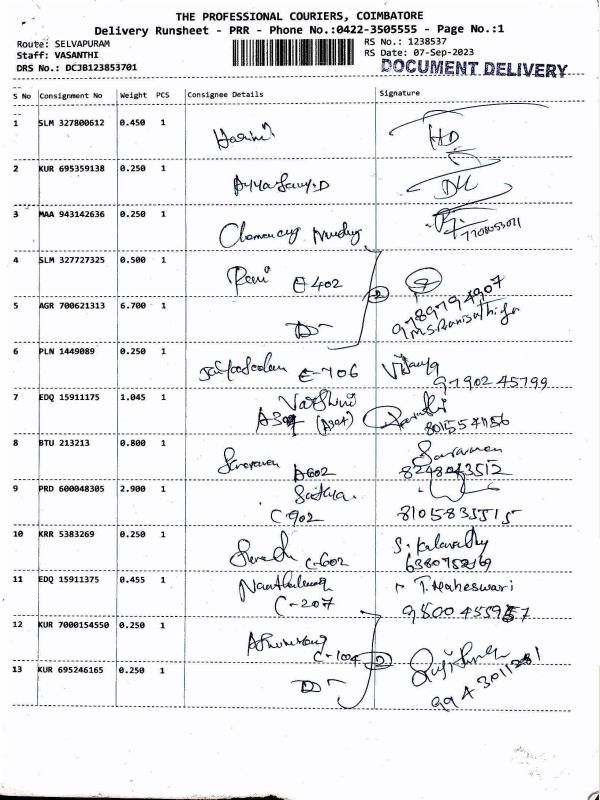 THE PROFESSIONAL COURIERS, COIMBATORE
Delivery Runsheet - PRR - Phone No.:0422-3505555 - Page No.:1
Route: SELVAPURAM
RS No.: 1238537
Staff: VASANTHI
RS Date: 07-Sep-2023
DRS No.: DCJB123853701
DOCUMENT DELIVERY
S No Consignment No Weight PCS Consignee Details Signature
1 SLM 327800612 0.450 1 HD
2 KUR 695359138 0.250 1
3 MAA 943142636 0.250 1
4 SLM 327727325 0.500 1 Rani E 402
2
5 AGR 700621313 6.700 1 9789794907
6 PLN 1449089 0.250 1 E-706 Vijaya
97902 45799
7 EDQ 15911175 1.045 1 Varshini
A304 (A304)
8 BTU 213213 0.800 1 Saravanan Saravanan
A602 8248043512
9 PRD 600048305 2.900 1 Sathya
C-902 8105835515
10 KRR 5383269 0.250 1 C-602 S. Kalavathy
11 EDQ 15911375 0.455 1 T. Maheswari
C-207
12 KUR 7000154550 0.250 1
C-1004 2
13 KUR 695246165 0.250 1 994 3011281